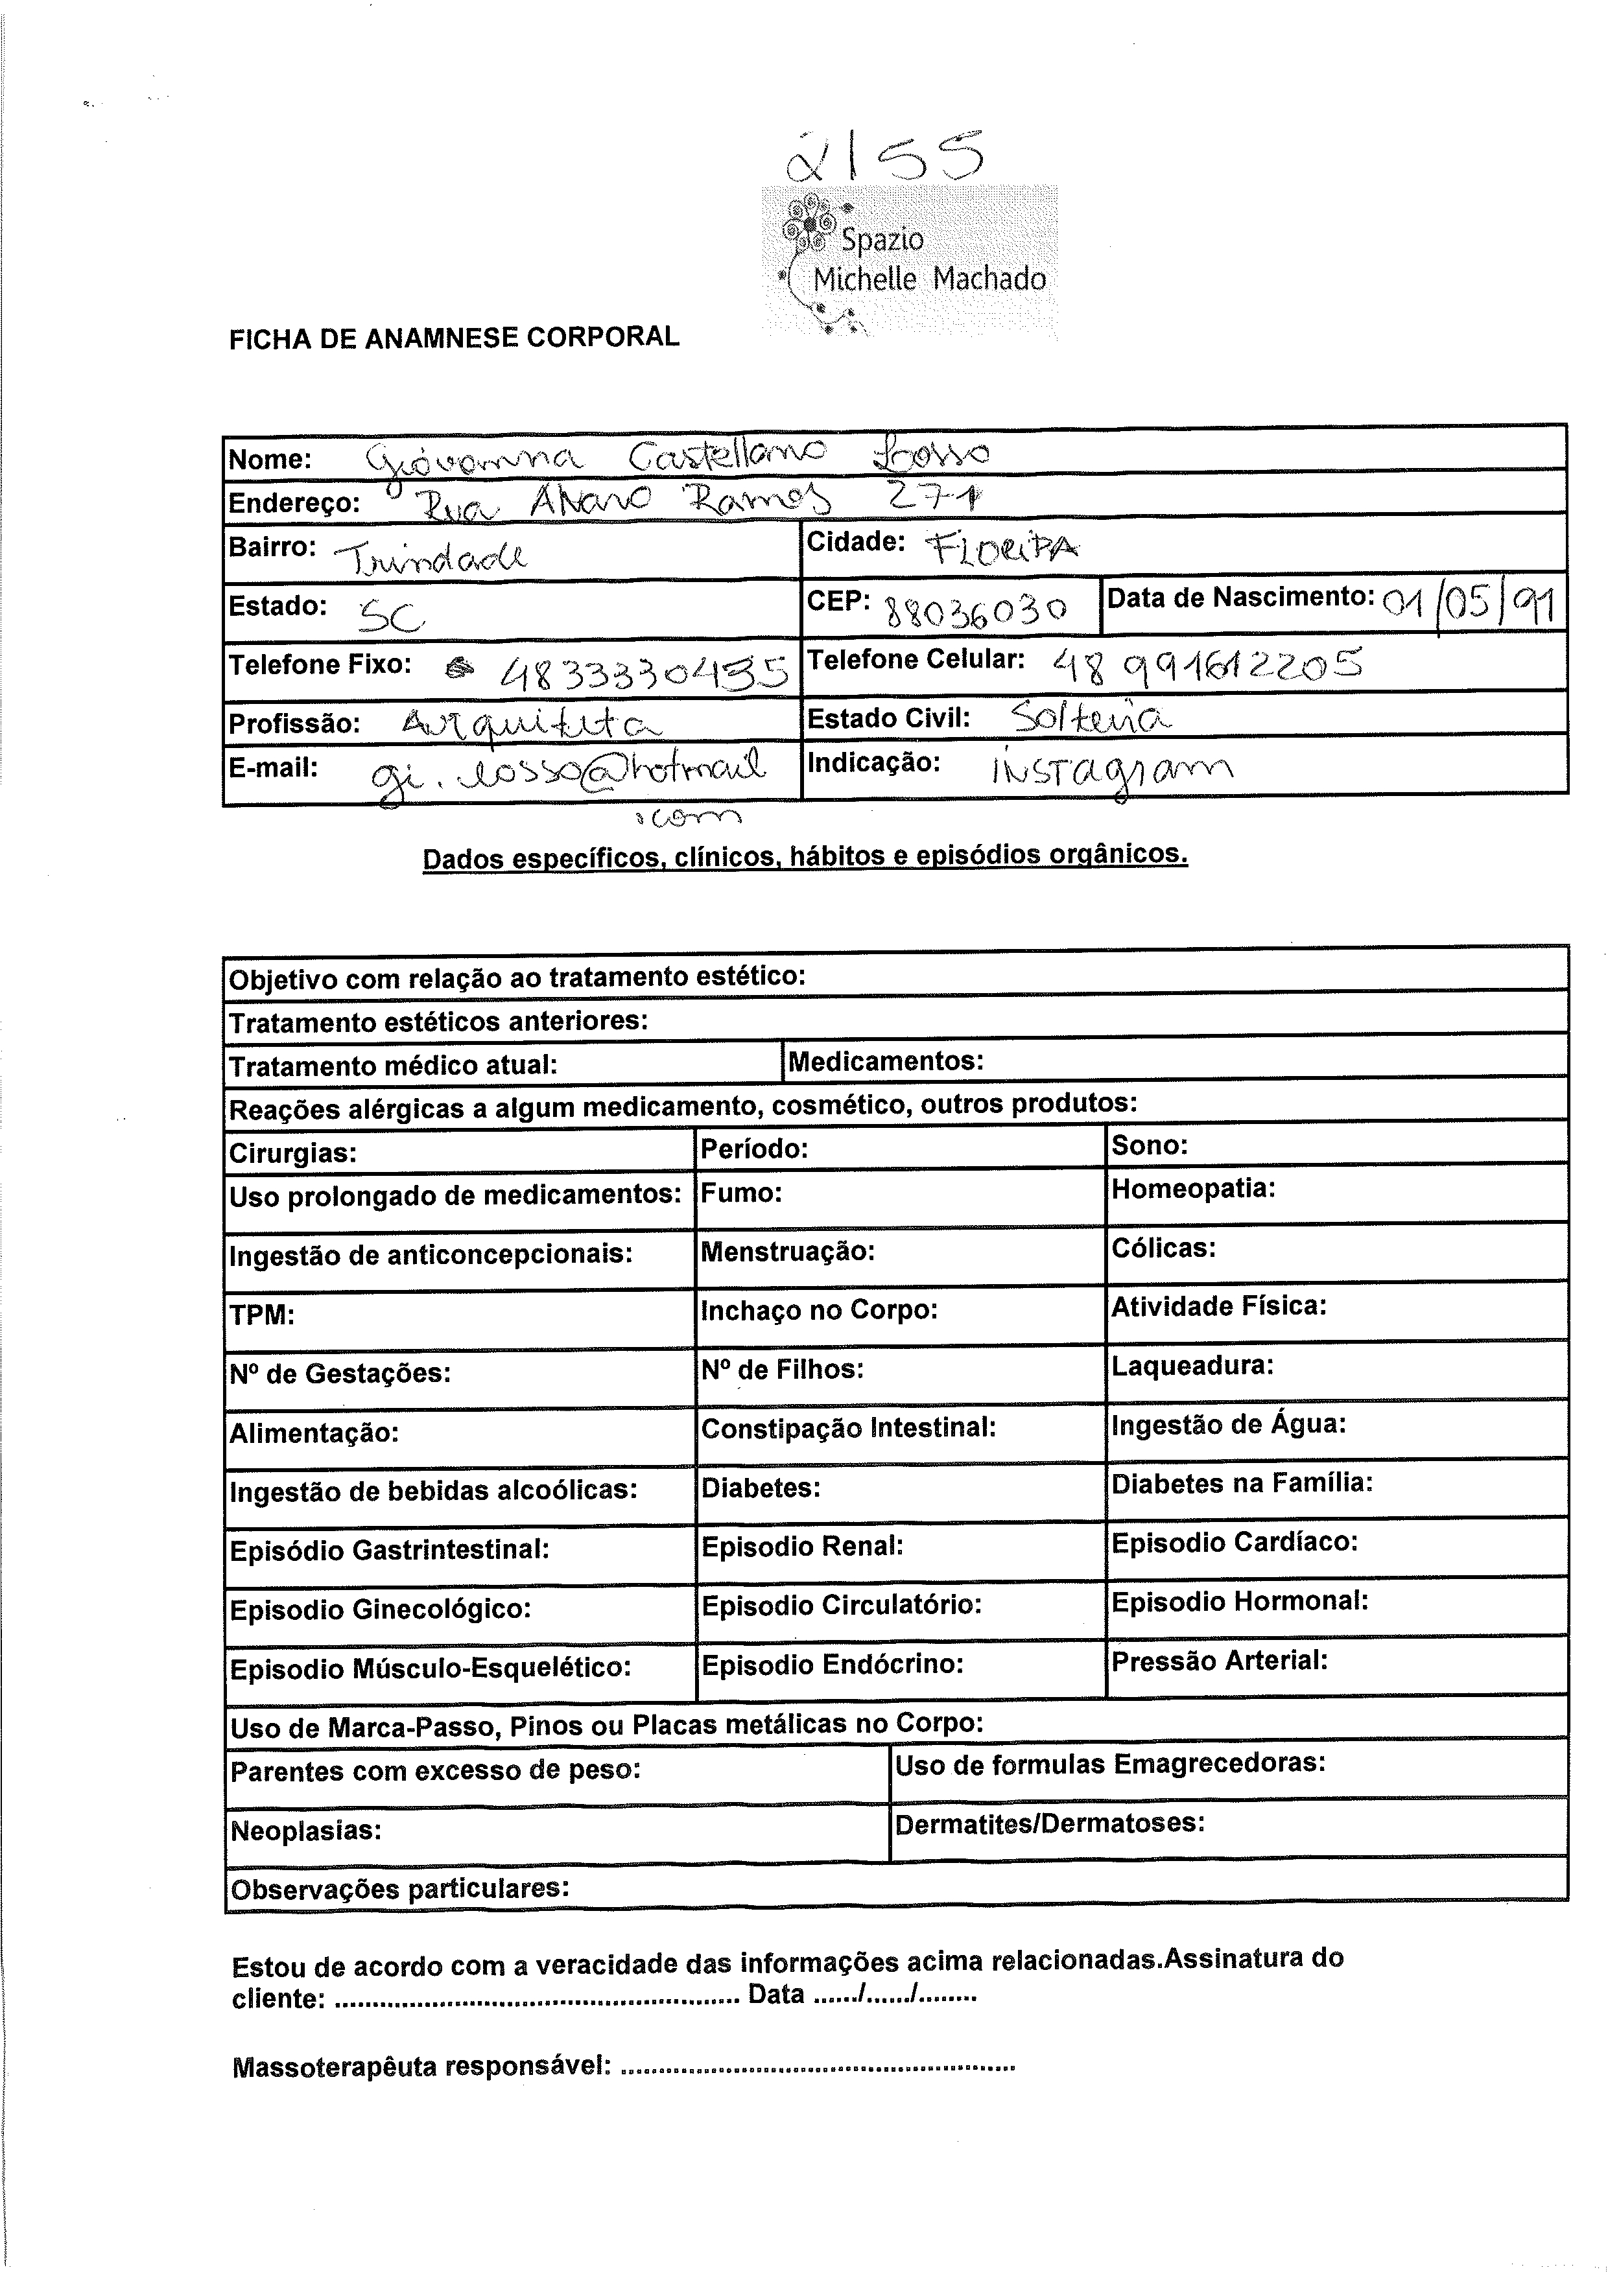 2155
Spazio
Michelle Machado
FICHA DE ANAMNESE CORPORAL
Nome: Giovanna Castellano Losso
Endereço: Rua Alvaro Ramos 271
Bairro: Trindade Cidade: FLORIPA
Estado: SC CEP: 88036030 Data de Nascimento: 01/05/91
Telefone Fixo: 4833330435 Telefone Celular: 48 991612205
Profissão: Arquiteta Estado Civil: Solteira
E-mail: gi.losso@hotmail Indicação: instagram
.com
Dados específicos, clínicos, hábitos e episódios orgânicos.
Objetivo com relação ao tratamento estético:
Tratamento estéticos anteriores:
Tratamento médico atual: Medicamentos:
Reações alérgicas a algum medicamento, cosmético, outros produtos:
Cirurgias: Período: Sono:
Uso prolongado de medicamentos: Fumo: Homeopatia:
Ingestão de anticoncepcionais: Menstruação: Cólicas:
TPM: Inchaço no Corpo: Atividade Física:
Nº de Gestações: Nº de Filhos: Laqueadura:
Alimentação: Constipação Intestinal: Ingestão de Água:
Ingestão de bebidas alcoólicas: Diabetes: Diabetes na Família:
Episódio Gastrintestinal: Episodio Renal: Episodio Cardíaco:
Episodio Ginecológico: Episodio Circulatório: Episodio Hormonal:
Episodio Músculo-Esquelético: Episodio Endócrino: Pressão Arterial:
Uso de Marca-Passo, Pinos ou Placas metálicas no Corpo:
Parentes com excesso de peso: Uso de formulas Emagrecedoras:
Neoplasias: Dermatites/Dermatoses:
Observações particulares:
Estou de acordo com a veracidade das informações acima relacionadas.Assinatura do
cliente: ...................................................... Data ....../....../........
Massoterapêuta responsável: ....................................................